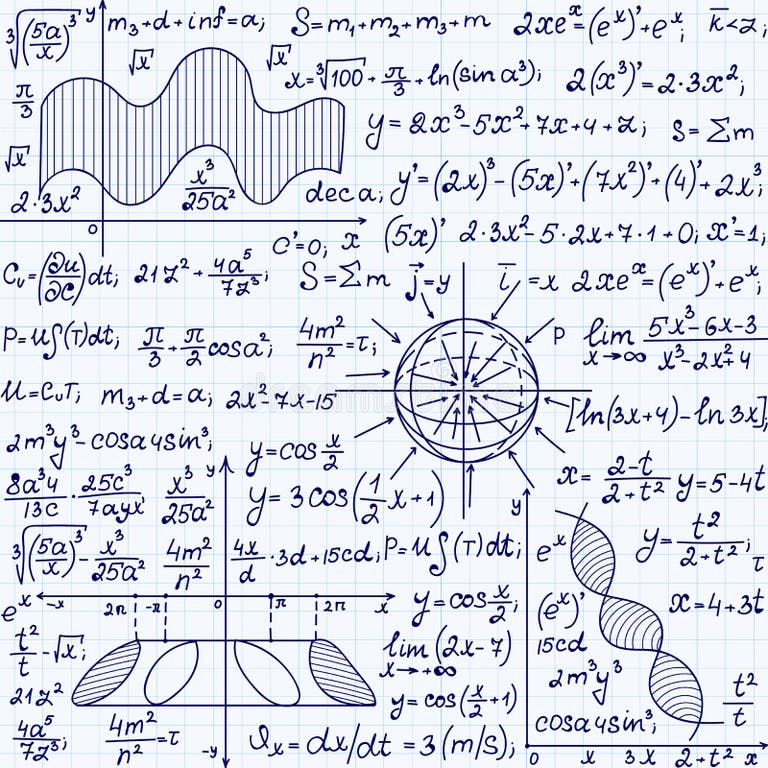 ∛(5a/x)³ y m₃+d+inf=a; S=m₁+m₂+m₃+m 2xeˣ=(eˣ)'+eˣ; k̅<z;
√x √x x=∛100+π/3+ln(sin a³); 2(x³)'=2·3x²;
π/3 y=2x³-5x²+7x+4+z; S=Σm
√x x³/25a² y'=(2x)³-(5x)'+(7x²)'+(4)'+2x³;
2·3x² dec a;
0 C'=0; x (5x)' 2·3x²-5·2x+7·1+0; x'=1;
Cᵥ=(∂u/∂C)dt; 21z²+4a⁵/7z³; S=Σm j⃗=y i̅ =x 2xeˣ=(eˣ)'+eˣ;
P=u∫(T)dt; π/3+π/2cosa²; 4m²/n²=τ; P lim x→∞ 5x³-6x-3/x³-2x²+4
u=CᵥT; m₃+d=a; 2x²-7x-15 [ln(3x+4)-ln3x];
2m³y³-cosa4sin³; y=cos x/2 x=2-t/2+t² y=5-4t
8a³4/13c·25c³/7ayx x³/25a² y y=3cos(1/2x+1) y
∛(5a/x)³-x³/25a² 4m²/n² 4x/d·3d+15cd; P=u∫(T)dt; eˣ y=t²/2+t²; τ
eˣ -x 2π -π 0 π 2π x y=cos x/2; (eˣ)' x=4+3t
t²/t-√x; lim x→+∞ (2x-7) 15cd
21z² y=cos(x/2+1) 2m³y³ t²/t
4a⁵/7z³; 4m²/n²=τ -y ϑₓ=dx/dt=3(m/s); cosa4sin³;
0 x 3x 2+t² x